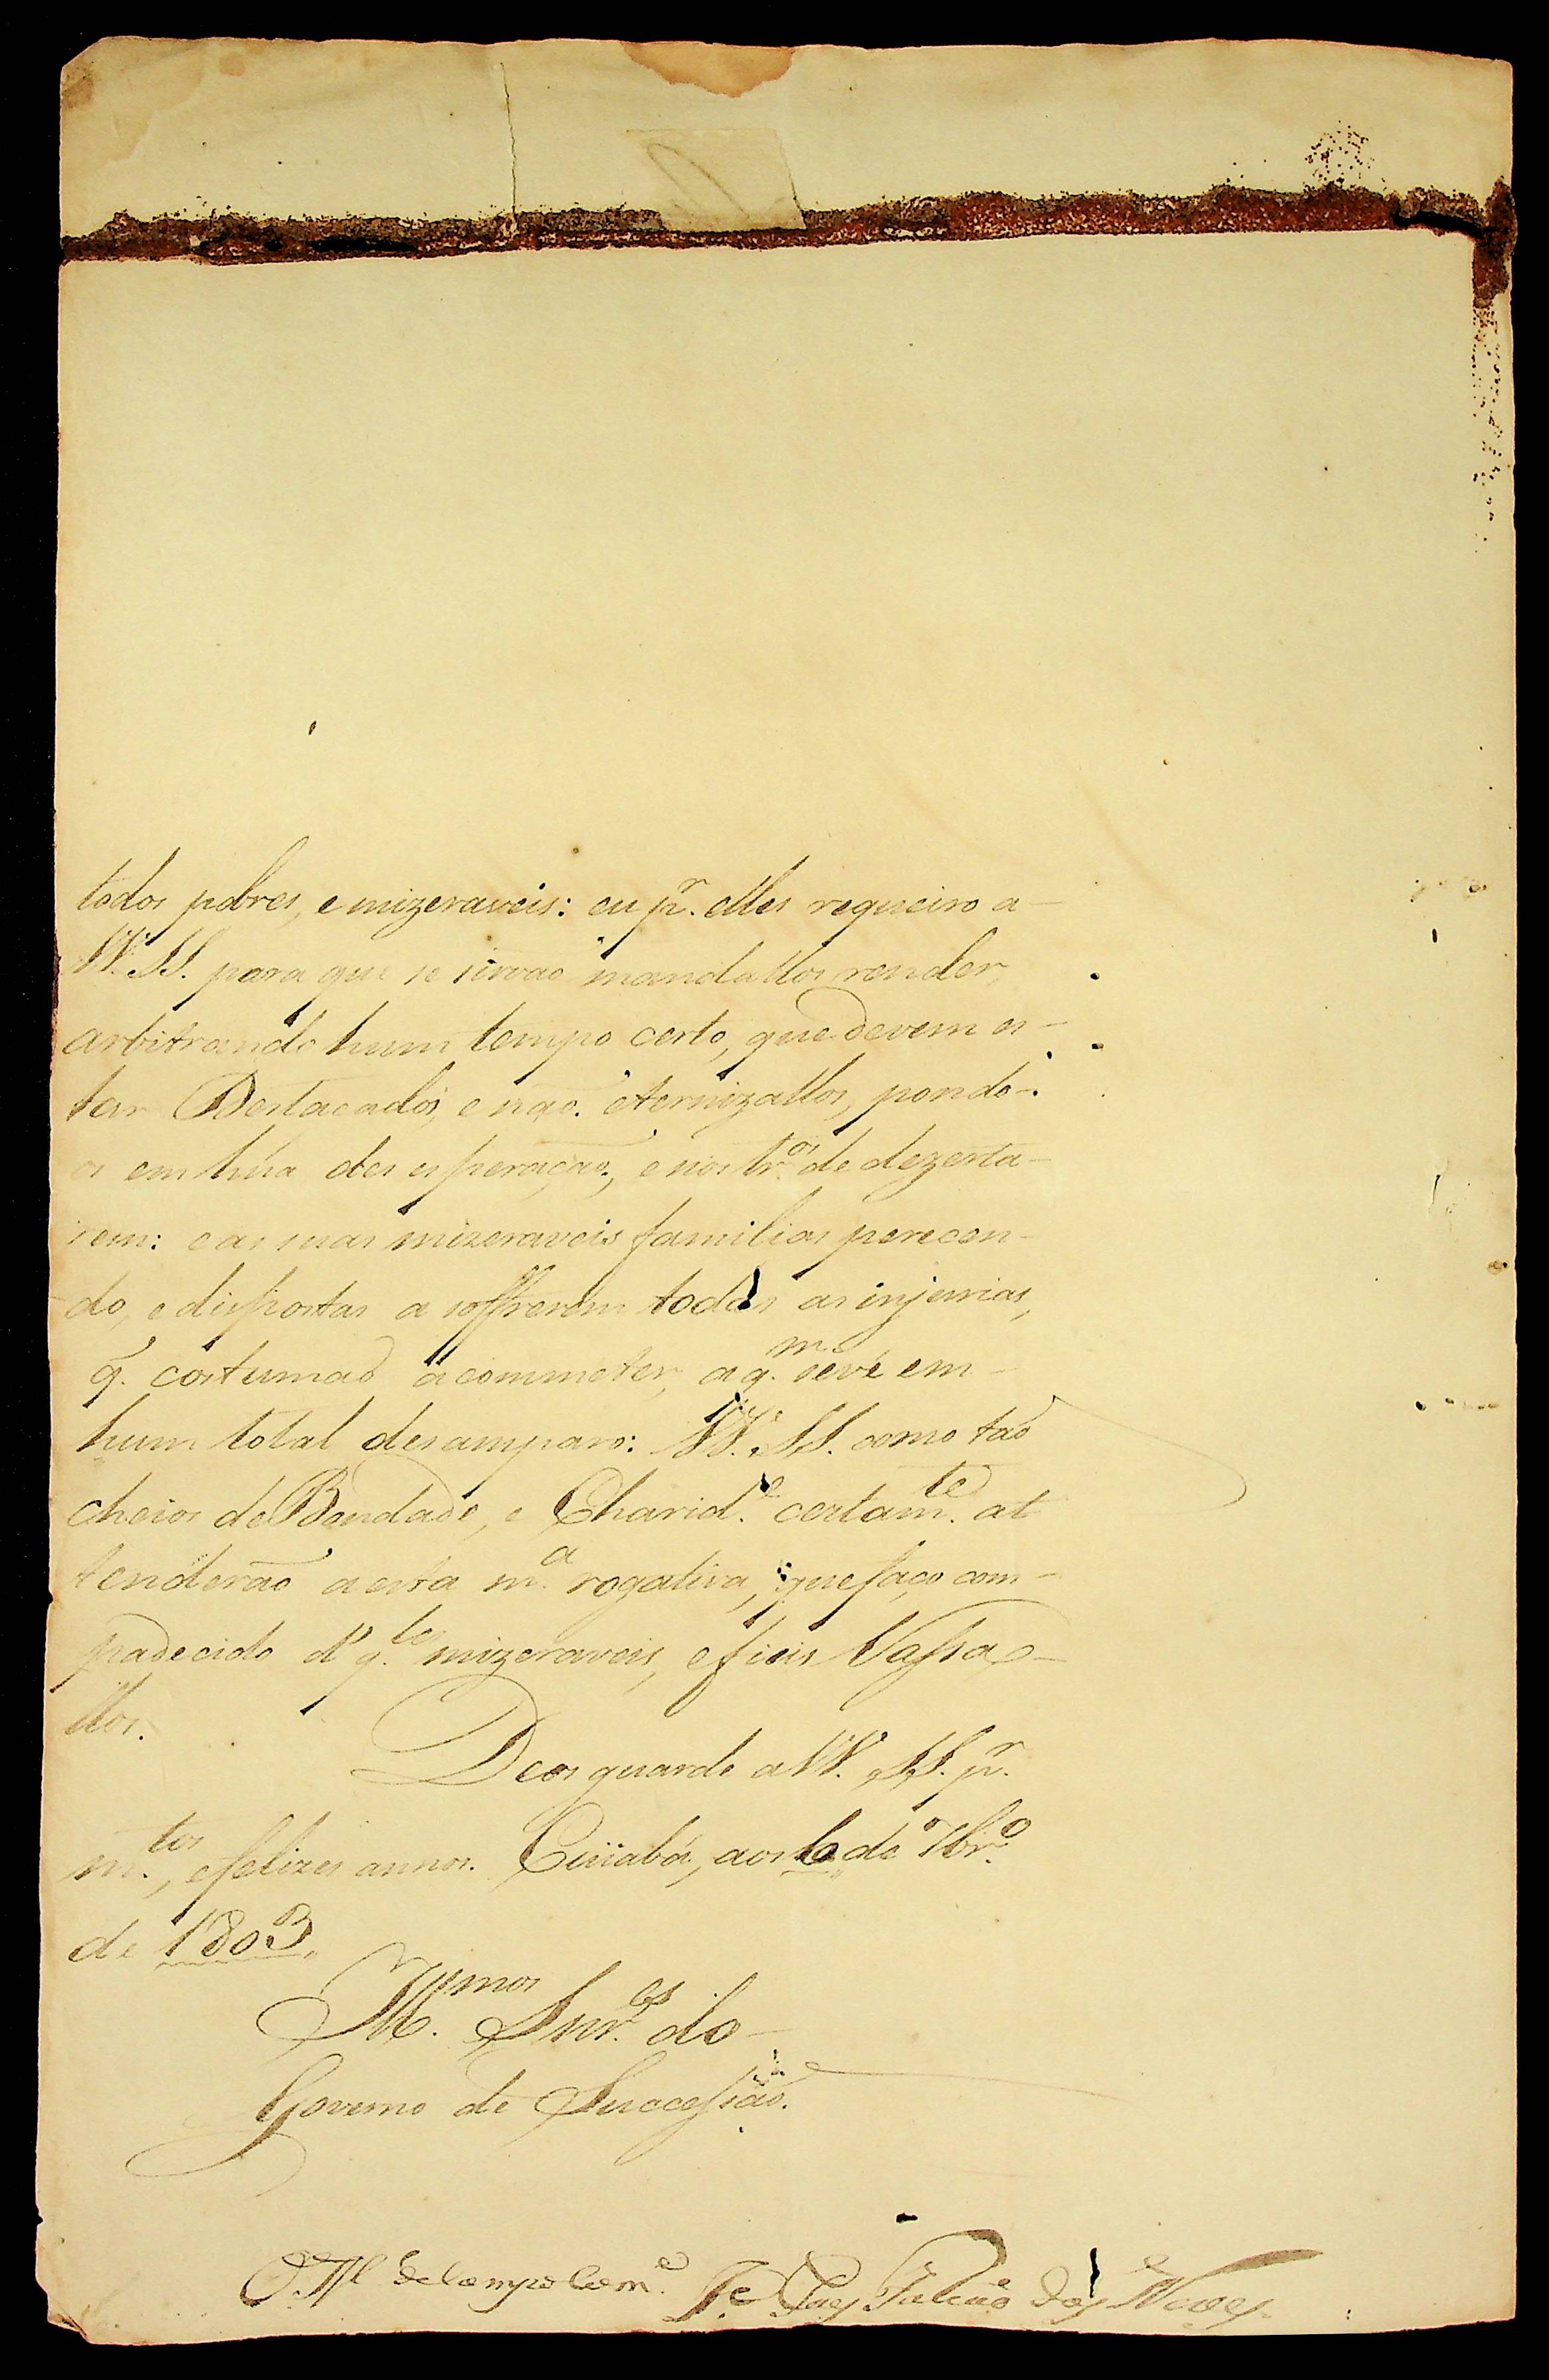 todos pobres, e mizeraveis: eu pr. elles requeiro a-
VV. SS. para que se sirvaõ mandallos render,
arbitrando hum tempo certo, que devem es-
tar Destacados, e naõ. eternizallos, pondo-
os em húa desesperaçaõ, e nos tr.os de dezerta-
rem: e as suas mizeraveis familias perecen-
do, e dispostas a soffrerem todas as injurias,
q. costumaõ acommeter, a q.m se vê em-
hum total desamparo: VV. SS. como taõ
cheios de Bondade, e Charid.e certam.te at
tenderaõ a esta m.a rogativa, que faço com-
padecido d' q.tes mizeraveis, e fieis Vassa-
llos.
Deos guarde a VV. SS. pr.
m.tos, e felizes annos. Cuiabá, aos 6 de 7br.o
de 1803.
Ill.mos Snr.es do-
Governo de Successaõ.
O M.e de Campo Com.e Je Paes Falcaõ das Neves